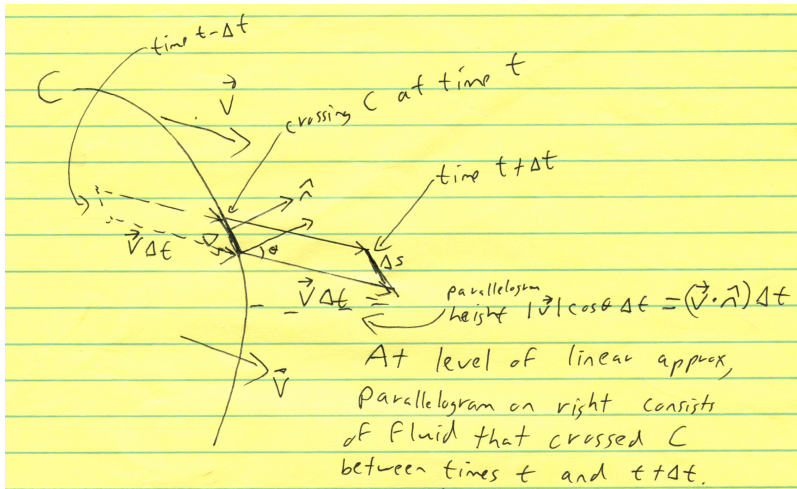 time t-Δt
C
V⃗
crossing C at time t
n̂
time t+Δt
V⃗ Δt
Δs
θ
Δs
V⃗ Δt
parallelogram
height |V⃗| cosθ Δt = (V⃗·n̂) Δt
V⃗
At level of linear approx,
parallelogram on right consists
of fluid that crossed C
between times t and t+Δt.